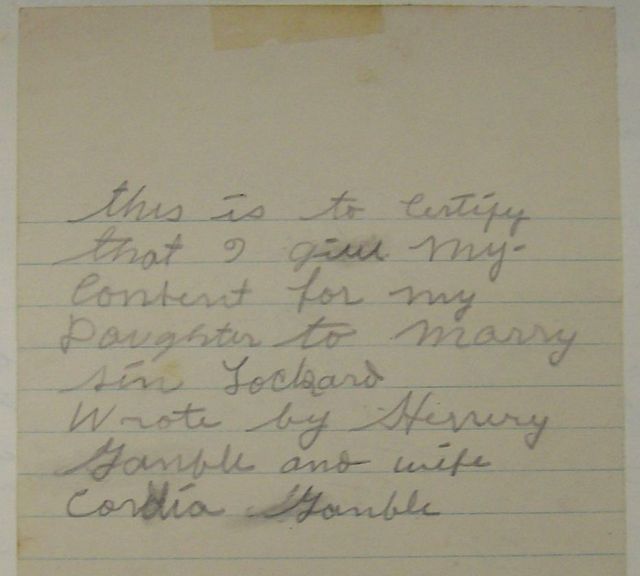 this is to Certify
that I give My-
Consent for my
Daughter to Marry
sin Lockard
Wrote by Henery
Gamble and wife
Cordia Gamble